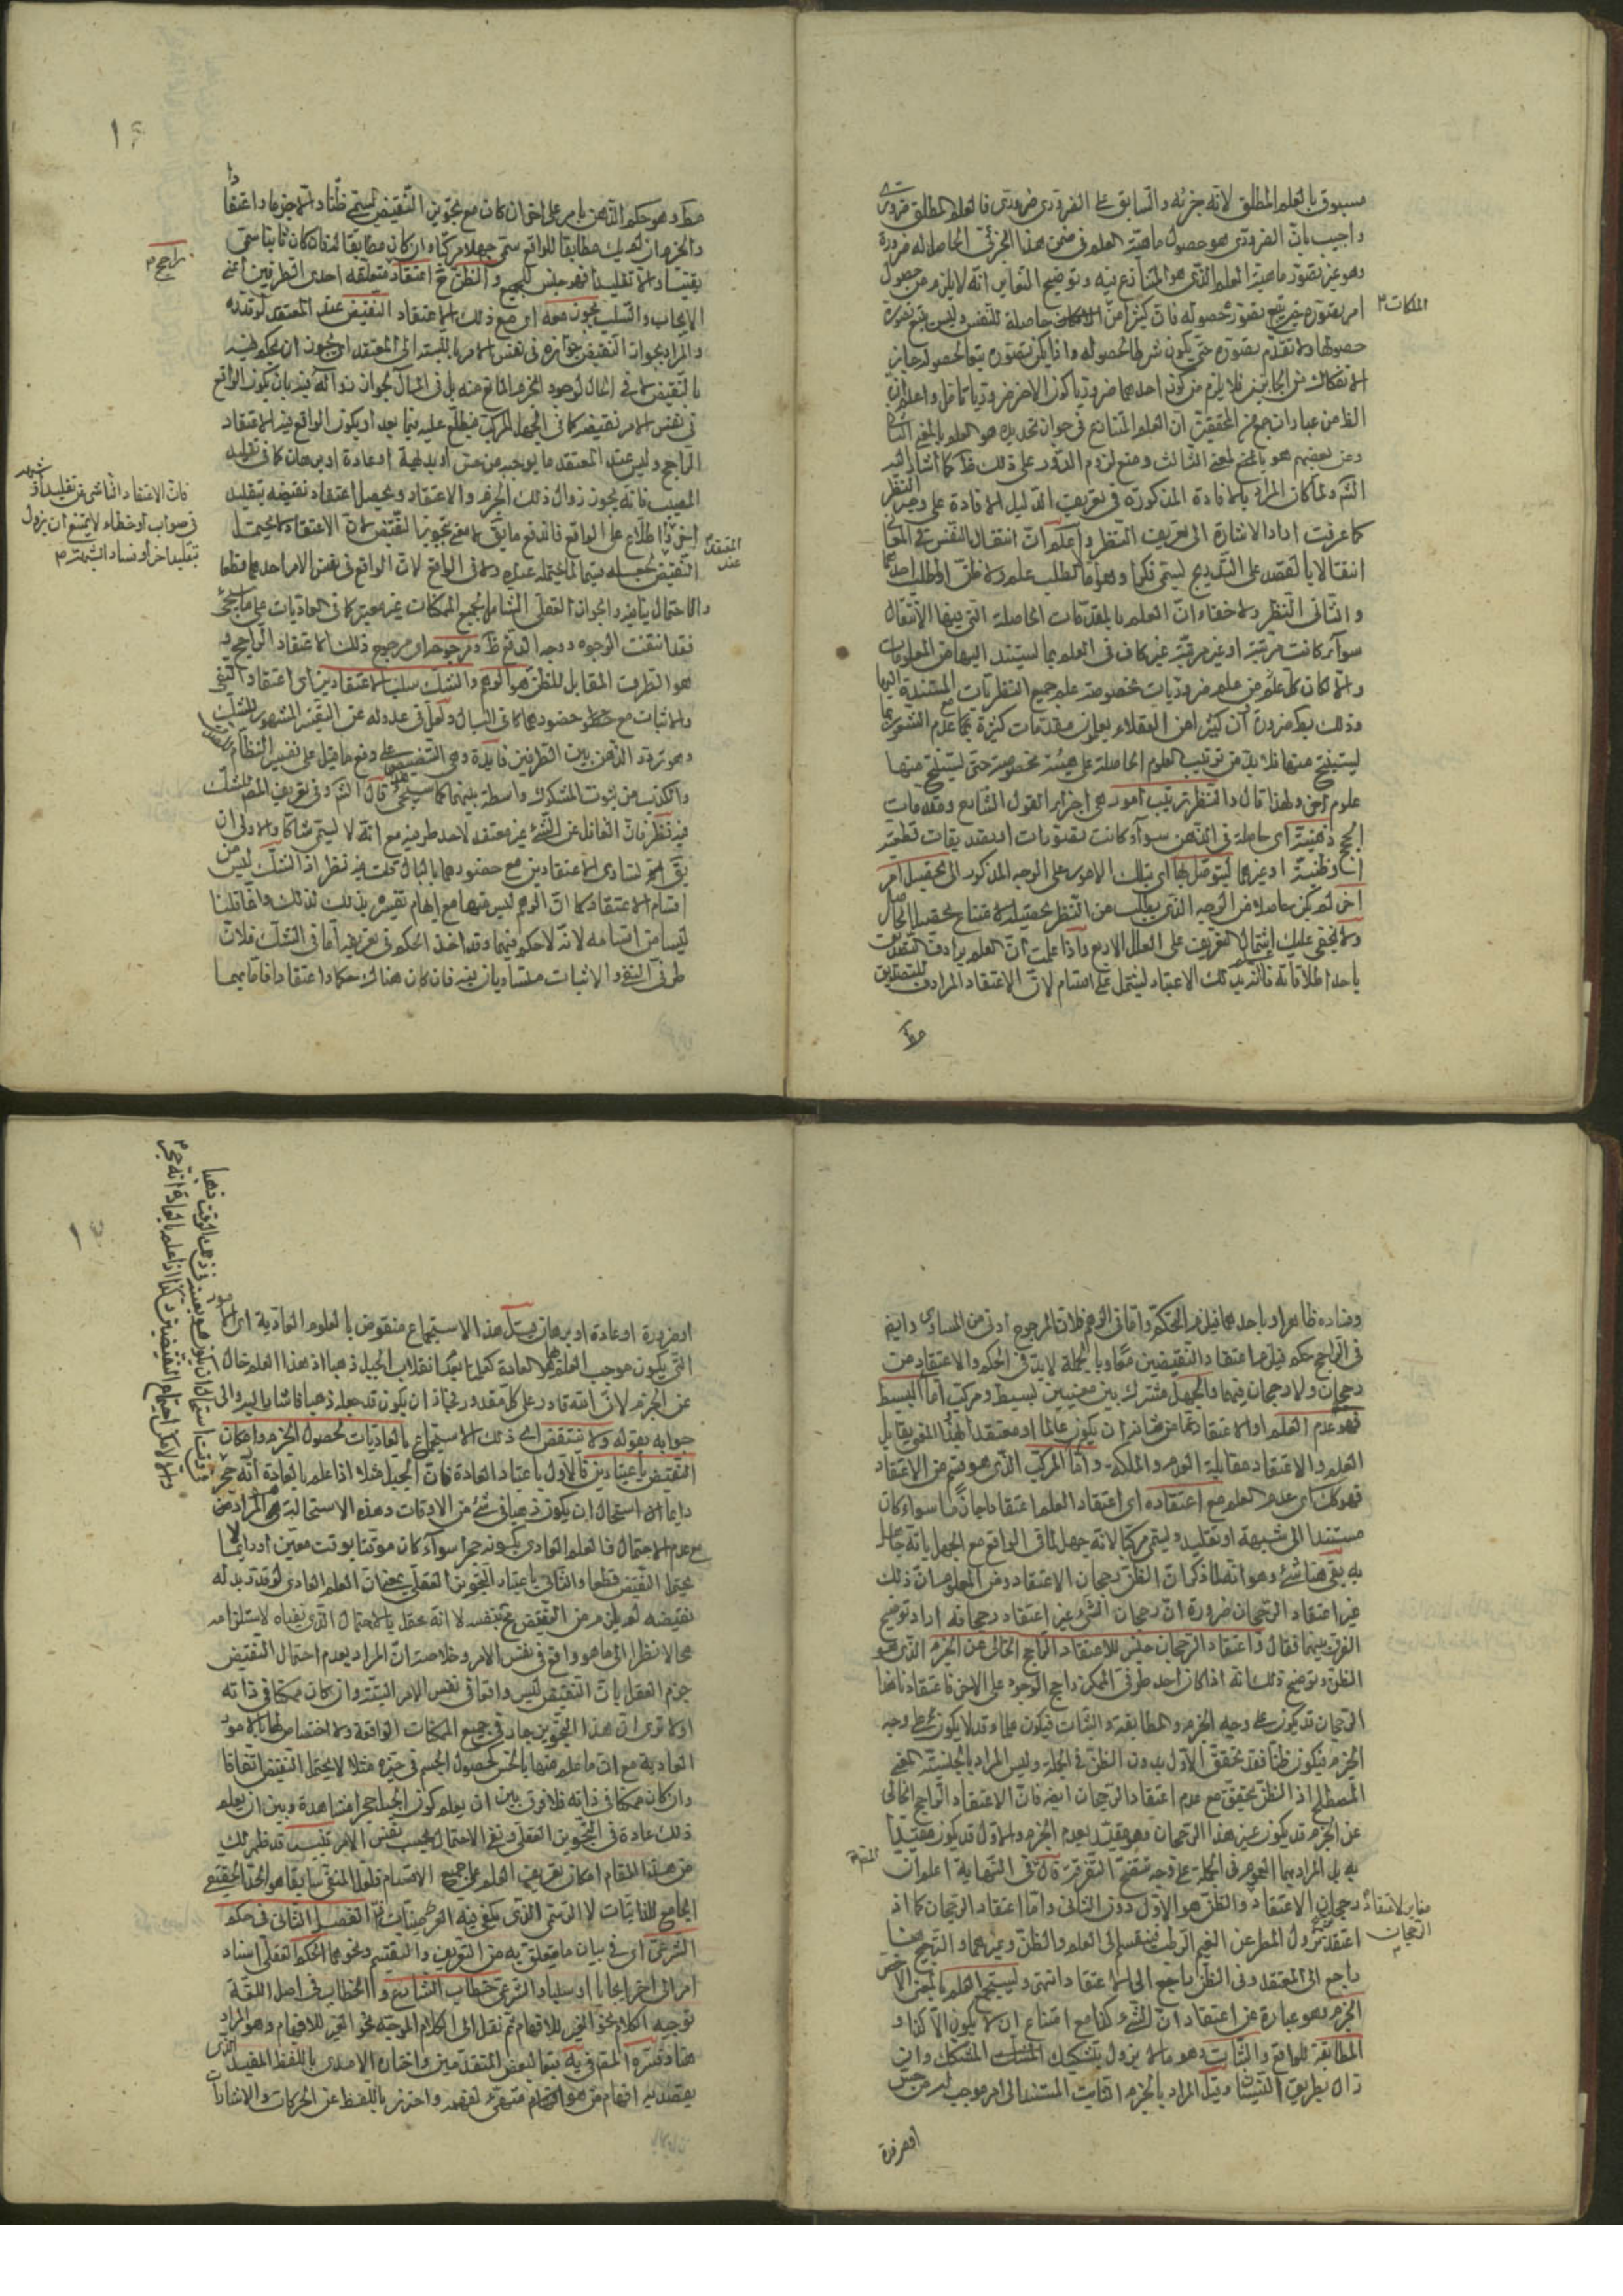 مسبوق بالعلم المطلق لانه جزئه والسابق على الضرورى ضرورى فالعلم المطلق ضرورى
واجيب بان الضرورى هو حصول ماهية العلم فى ضمن هذا الجزئى الحاصل له ضرورة
وهو غير تصور ماهية العلم الذى هو المتنازع فيه وتوضيح التغاير انه لا يلزم من حصول
امر تصوره حتى يتبع تصوره حصوله فان كثيرا من حاصلة للنفس وليس يتبع تصوره
الملكات
حصولها ولا تقدم تصوره حتى يكون شرطا لحصوله واذا لم يكن تصوره تبعا لحصوله جاز
الانفكاك من الجانبين فلا يلزم من كون احدهما ضروريا كون الاخر ضروريا تامل واعلم ان
الظ من عبارات جمع من المحققين ان العلم المتنازع فى جواز تحديده هو العلم بالمعنى الثانى
وعن بعضهم هو بالمعنى الثالث ومنع لزوم الدور على ذلك ظ كما اشار اليه
الش ولما كان المراد بالافادة المذكورة فى تعريف الدليل الافادة على وجه النظر
كما عرفت اراد الاشارة الى تعريف النظر واعلم ان انتقال النفس فى المعانى
انتقالا بالقصد على التدريج يسمى فكرا وهو اما لطلب علم او ظن او لا لطلب احدهما
والثانى النظر ولا خفاء ان العلم بالمقدمات الحاصلة التى يقع فيها الانتقال
سواء كانت مرتبة او غير مرتبة غير كاف فى العلم بما يستند اليها من المعلومات
والا لكان كل عالم علوم ضروريات مخصوصة عليه جميع النظريات المستندة اليها
وذلك بط ضرورة ان كثيرا من العقلاء يعلمون مقدمات كثيرة مع عدم الشعور بما
يستنتج منها فلا بد من ترتيب العلوم الحاصلة على هيئة مخصوصة حتى يستنتج منها
علوم اخرى ولهذا قال والنظر ترتيب امور هى اجزاء القول الشارح ومقدمات
الحجج ذهنية اى حاصلة فى الذهن سواء كانت تصورات او تصديقات قطعية
او ظنية او غيرهما ليتوصل بها اى بتلك الامور على الوجه المذكور الى تحصيل امر
اخر لم يكن حاصلا من الوجه الذى يطلب من النظر تحصيله لامتناع تحصيل الحاصل
ولا يخفى عليك اشتمال التعريف على العلل الاربع واذا علمت ان العلم يرادف التصديق
باحد اطلاقاته فالعلم بذلك الاعتبار ليشتمل على اقسام لان الاعتقاد المرادف للتصديق
وهو حكم الذهن بامر على اخر ان كان مع تجويز النقيض يسمى ظنا والا جزما واعتقادا
والجزم ان لم يكن مطابقا للواقع سمى جهلا مركبا وان كان مطابقا له فان كان ثابتا سمى
يقينا والا تقليدا فهو جنس للجميع والظن اعتقاد متعلقه احدى الطرفين اعنى
راجح
الايجاب والسلب يجوز معه اى مع ذلك الاعتقاد النقيض عند المعتقد
والمراد بجواز النقيض جوازه فى نفس الامر بالنسبة الى المعتقد اى يجوز ان يحكم فيه
بالنقيض لا فى الحال لوجود الجزم المانع منه بل فى المآل لجواز زواله فيه بان يكون الواقع
فى نفس الامر نقيضه كما فى الجهل المركب فيطلع عليه فيما بعد او يكون الواقع فيه الاعتقاد
الراجح وليس عند المعتقد ما يوجبه من حس او بديهة او عادة او برهان كما فى تقليد
المصيب فانه يجوز زوال ذلك الجزم والاعتقاد ويحصل اعتقاد نقيضه بتقليد
فان الاعتقاد الناشى عن تقليد او شبهة
فى صواب او خطاء لا يمتنع ان يزول
بتقليد اخر او فساد الشبهة
المعتقد
عند
النقيض لا يحتمله عنده ولا فى الواقع لان الواقع فى نفس الامر احدهما قطعا
والاحتمال ينافيه والجواز العقلى الشامل لجميع الممكنات غير معتبر كما فى العاديات على ما سيجئ
فقد اتفقت الوجوه ووجه الدفع ظ ومرجوحه اى مرجوح ذلك الاعتقاد الراجح و
هو الطرف المقابل للظن هو الوهم والشك سلب الاعتقادين اى اعتقاد النفى
والاثبات مع خطور حضورهما كما فى البال ولعل فى عدوله عن التفسير المشهور للشك
وهو تردد الذهن بين الطرفين فايدة وهى التنصيص على دفع ما قيل على تفسير النظام
والكذب من ثبوت المشكوك واسطة بينهما كما سيجئ قال الش وفى تعريف المص للشك
فيه نظر فان الغافل عن الشئ غير معتقد لاحد طرفيه مع انه لا يسمى شاكا والاولى ان
يق انه تساوى الاعتقادين مع حضورهما بالبال قلت فيه نظر اذ الشك ليس من
اقسام الاعتقاد كما ان الوهم ليس منها مع ايهام تفسيره بذلك لذلك وانما قلنا
ليسا من اقسامه لانه لا حكم فيهما وقد اخذ الحكم فى تعريفه اما فى الشك فلان
طرفى النفى والاثبات متساويان فيه فان كان هناك حكم واعتقاد فاما بهما
وفساده ظاهر او باحدهما فيلزم التحكم واما فى الوهم فلان المرجوح ادنى من المساوى وايضا
فى الراجح حكم فيلزم اعتقاد النقيضين معا وبالجملة لا بد فى الحكم والاعتقاد من
رجحان ولا رجحان فيهما والجهل مشترك بين معنيين بسيط ومركب اما البسيط
فهو عدم العلم او الاعتقاد عما من شانه ان يكون عالما او معتقدا بهذا المعنى يقابل
العلم والاعتقاد مقابلة العدم والملكة واما المركب الذى هو قسم من الاعتقاد
فهو كك اى عدم العلم مع اعتقاده اى اعتقاد العلم اعتقادا جازما سواء كان
مستندا الى شبهة او تقليد ويسمى مركبا لانه جهل بما فى الواقع مع الجهل بانه جاهل
به بقى هنا شئ وهو انه لما ذكر ان الظن رجحان الاعتقاد ومن المعلوم ان ذلك
غير اعتقاد الرجحان ضرورة ان رجحان الشئ غير اعتقاد رجحانه اراد توضيح
الفرق بينهما فقال واعتقاد الرجحان جنس للاعتقاد الراجح الخالى من الجزم الذى هو
الظن وتوضيح ذلك انه اذا كان احد طرفى الممكن راجح الوجود على الاخر فاعتقادنا هذا
الرجحان قد يكون على وجه الجزم والمطابقة والثبات فيكون علما وقد لا يكون على وجه
الجزم فيكون ظنا فقد تحقق الاول بدون الظن فى الجملة وليس المراد بالجنسية المعنى
المصطلح اذ الظن يتحقق مع عدم اعتقاد الرجحان ايضا فان الاعتقاد الراجح الخالى
عن الجزم قد يكون غير هذا الرجحان وهو مقيد بعدم الجزم والاول قد يكون مقيدا
به بل المراد بهما العموم فى الجملة على وجه تتضح التفرقة قال فى النهاية اعلم ان
رجحان الاعتقاد والظن هو الاول دون الثانى واما اعتقاد الرجحان كما اذ
مغاير لاعتقاد
الرجحان
اعتقد نزول المطر عن الغيم الرطب فينقسم الى العلم والظن وغيرهما والترجيح هنا
راجع الى المعتقد وفى الظن راجع الى الاعتقاد انتهى ويستجمع العلم بالمعنى الاخص
الجزم وهو عبارة عن اعتقاد ان الشئ كذا مع امتناع ان لا يكون الا كذا و
المطابقة للواقع والثبات وهو ما لا يزول بتشكيك المشكك وان
زال بطريق النسيان وقيل المراد بالجزم الثابت المستند الى امر موجب له من حس
او ضرورة
او ضرورة او عادة او برهان هذا الاستجماع منقوض بالعلوم العادية اى
التى يكون موجب العلم العادة كعلمنا بعدم انقلاب الجبل ذهبا اذ هذا العلم خال
عن الجزم لان الله قادر على كل مقدور فجاز ان يكون قد جعله ذهبا فاشار اليه والى
جوابه بقوله ولا ينتقض اى ذلك الاستجماع بالعاديات لحصول الجزم وامكان
النقيض باعتبارين فالاول باعتبار العادة فان الجبل مثلا اذا علم بالعادة انه حجر
دايما استحال ان يكون ذهبا فى شئ من الاوقات وهذه الاستحالة هى المراد من
عدم الاحتمال فالعلم العادى بكونه حجرا سواء كان موقتا بوقت معين او دايما لا
يحتمل النقيض قطعا والثانى باعتبار التجويز العقلى بمعنى ان العلم العادى لو قدر بدله
نقيضه لم يلزم من النقيض مح بنفسه لا انه محتمل بالاحتمال الذى نفيناه لاستلزامه
محالا نظرا الى ما هو واقع فى نفس الامر وخلاصته ان المراد بعدم احتمال النقيض
جزم العقل بان النقيض ليس واقعا فى نفس الامر البتة وان كان ممكنا فى ذاته
اولا ترى ان هذا التجويز جار فى جميع الممكنات الواقعة ولا اختصاص لها بالامور
العادية مع ان ما علم منها بالحس كحصول الجسم فى حيزه مثلا لا يحتمل النقيض اتفاقا
وان كان ممكنا فى ذاته فلا فرق بين ان يعلم كون الجبل حجرا مشاهدة وبين ان يعلم
ذلك عادة فى التجويز العقلى ونفى الاحتمال بحسب نفس الامر تنبيه قد ظهر لك
من هذا المقام امكان تعريف العلم على جميع الاقسام فلعل المنفى سابقا هو الحد الحقيقى
الجامع للذاتيات لا الرسمى الذى يكفى فيه العرضيات الفصل الثانى فى حكم
الشرعى اى فى بيان ما يتعلق به من التعريف والتقسيم ونحوهما الحكم لغة اسناد
امر الى اخر ايجابا او سلبا والشرعى خطاب الشارع والخطاب فى اصل اللغة
توجيه الكلام نحو الغير للافهام ثم نقل الى الكلام الموجه نحو الغير للافهام وهو المراد
هنا وفسره المص فى يه تبعا لبعض المتقدمين واختاره الامدى باللفظ المفيد الذى
يقصد به افهام من هو متهيئ لفهمه واحترز باللفظ عن الحركات والاشارات